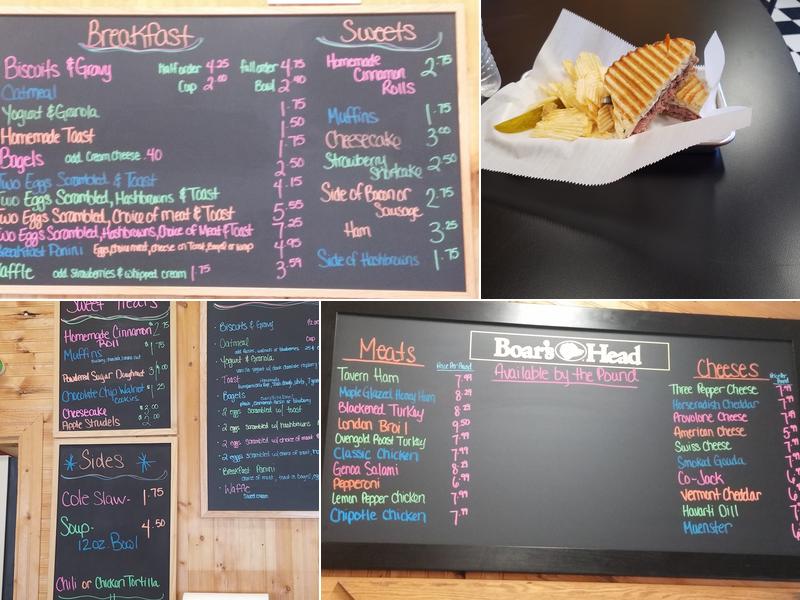 Breakfast
Biscuits & Gravy Half order 4.25 full order 4.75
Oatmeal Cup 2.00 Bowl 2.90
Yogurt & Granola 1.75
Homemade Toast 1.50
Bagels add Cream cheese .40 1.75
Two Eggs Scrambled & Toast 2.50
Two Eggs Scrambled, Hashbrowns & Toast 4.15
Two Eggs Scrambled, Choice of Meat & Toast 5.55
Two Eggs Scrambled, Hashbrowns, Choice of Meat & Toast 7.25
Breakfast Panini Eggs, choice meat, cheese on Toast, Bagel or wrap 4.95
Waffle add strawberries & whipped cream 1.75 3.59
Sweets
Homemade 2.75
Cinnamon
Rolls
Muffins 1.75
Cheesecake 3.00
Strawberry 2.50
Shortcake
Side of Bacon or 2.75
Sausage
Ham 3.25
Side of Hashbrowns 1.75
Sweet Treats
Homemade Cinnamon $2.75
Roll
Muffins $1.75
Powdered Sugar Doughnut
Chocolate Chip Walnut
cookies
Cheesecake $3.00
Apple Strudels 2.00
Sides
Cole Slaw- 1.75
Soup- 4.50
12oz. Bowl
Chili or Chicken Tortilla
- Biscuits & Gravy
- Oatmeal Cup
- Yogurt & Granola
- Toast
- Bagels
- 2 eggs scrambled w/ toast
- 2 eggs scrambled w/ hashbrowns
- 2 eggs scrambled w/ choice of meat
- 2 eggs scrambled w/ choice of meat,
- Breakfast Panini
- Waffle
Boar's Head
Available by the Pound
Meats Price Per Pound
Tavern Ham 7.99
Maple Glazed Honey Ham 8.29
Blackened Turkey 8.25
London Broil 9.50
Ovengold Roast Turkey 7.99
Classic Chicken 7.99
Genoa Salami 8.25
Pepperoni
Lemon Pepper Chicken 7.99
Chipotle Chicken 7.99
Cheeses
Three Pepper Cheese
Horseradish Cheddar
Provolone Cheese
American Cheese
Swiss Cheese
Smoked Gouda
Co-Jack
Vermont Cheddar
Havarti Dill
Muenster